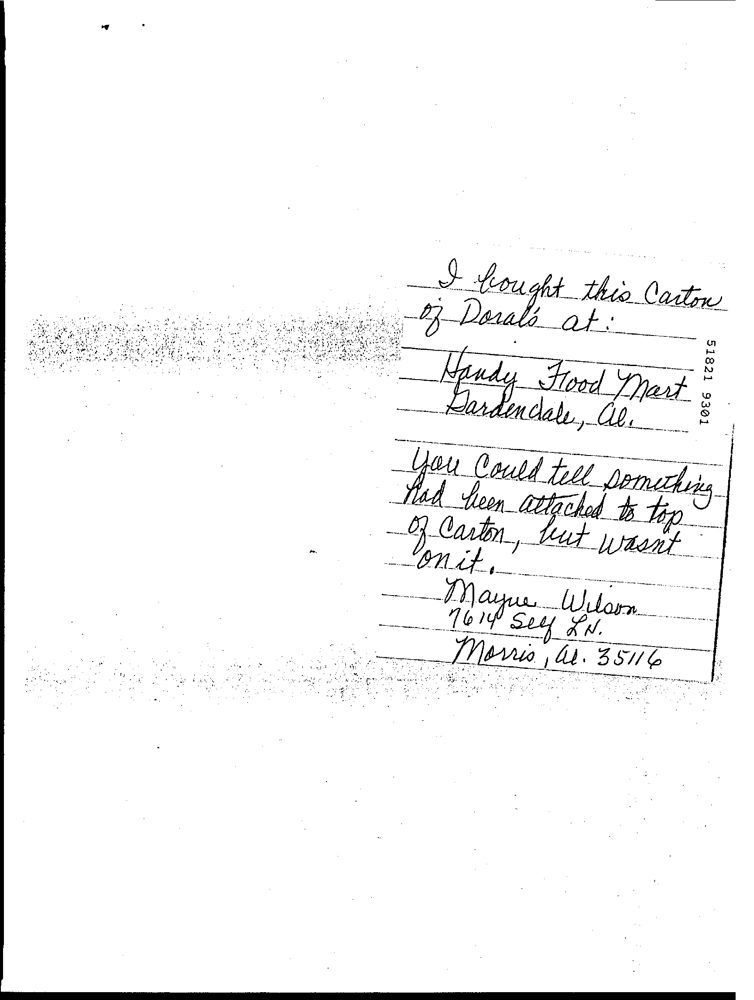 I bought this Carton
of Doral's at:
Handy Food Mart
Gardendale, Al.
You Could tell something
had been attached to top
of Carton, but wasn't
on it.
Mayne Wilson
7614 Self LN.
Morris, Al. 35116
51821 9301